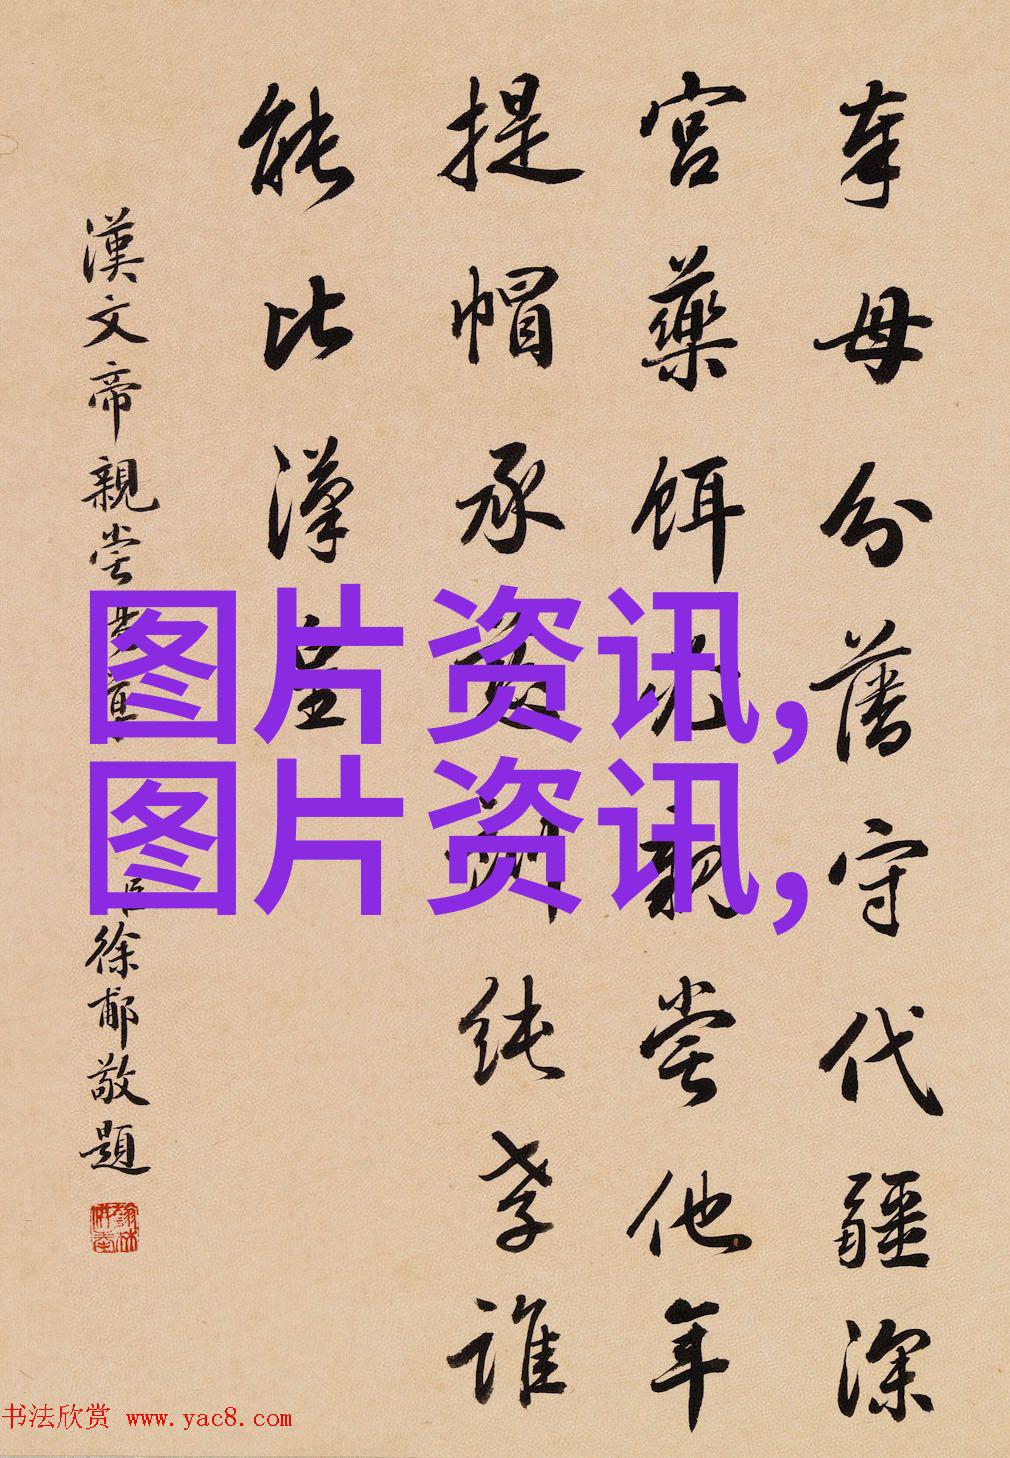 奉母分藩守代疆深
宮藥餌親嘗他年
提帽承純孝誰
能比漢皇
漢文帝親嘗臣徐郙敬題
图片资讯,
图片资讯,
书法欣赏 www.yac8.com